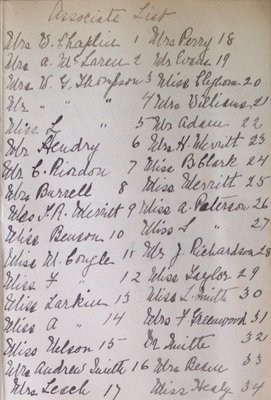 Associate List
Mrs W. Chaplin 1 Mrs Perry 18
Mrs A. McLaren 2 Mr Evans 19
Mrs W. G. Thompson 3 Miss Clyborn 20
Mr " " " 4 Mrs Williams 21
Miss L " 5 Mr Adam 22
Mr Hendry 6 Mrs H. Merritt 23
Mr C. Riordon 7 Miss B Clark 24
Mrs Burrell 8 Miss Merritt 25
Mrs J. R. Merritt 9 Miss A. Paterson 26
Miss Benson 10 Miss L " 27
Miss M. Coyle 11 Mr J. Richardson 28
Miss F " 12 Miss Taylor 29
Miss Larkin 13 Miss L. Smith 30
Miss A " 14 Mrs F Greenwood 31
Miss Nelson 15 Mr Smith 32
Mrs Andrew Smith 16 Mrs 33
Mrs Leach 17 Miss Healy 34